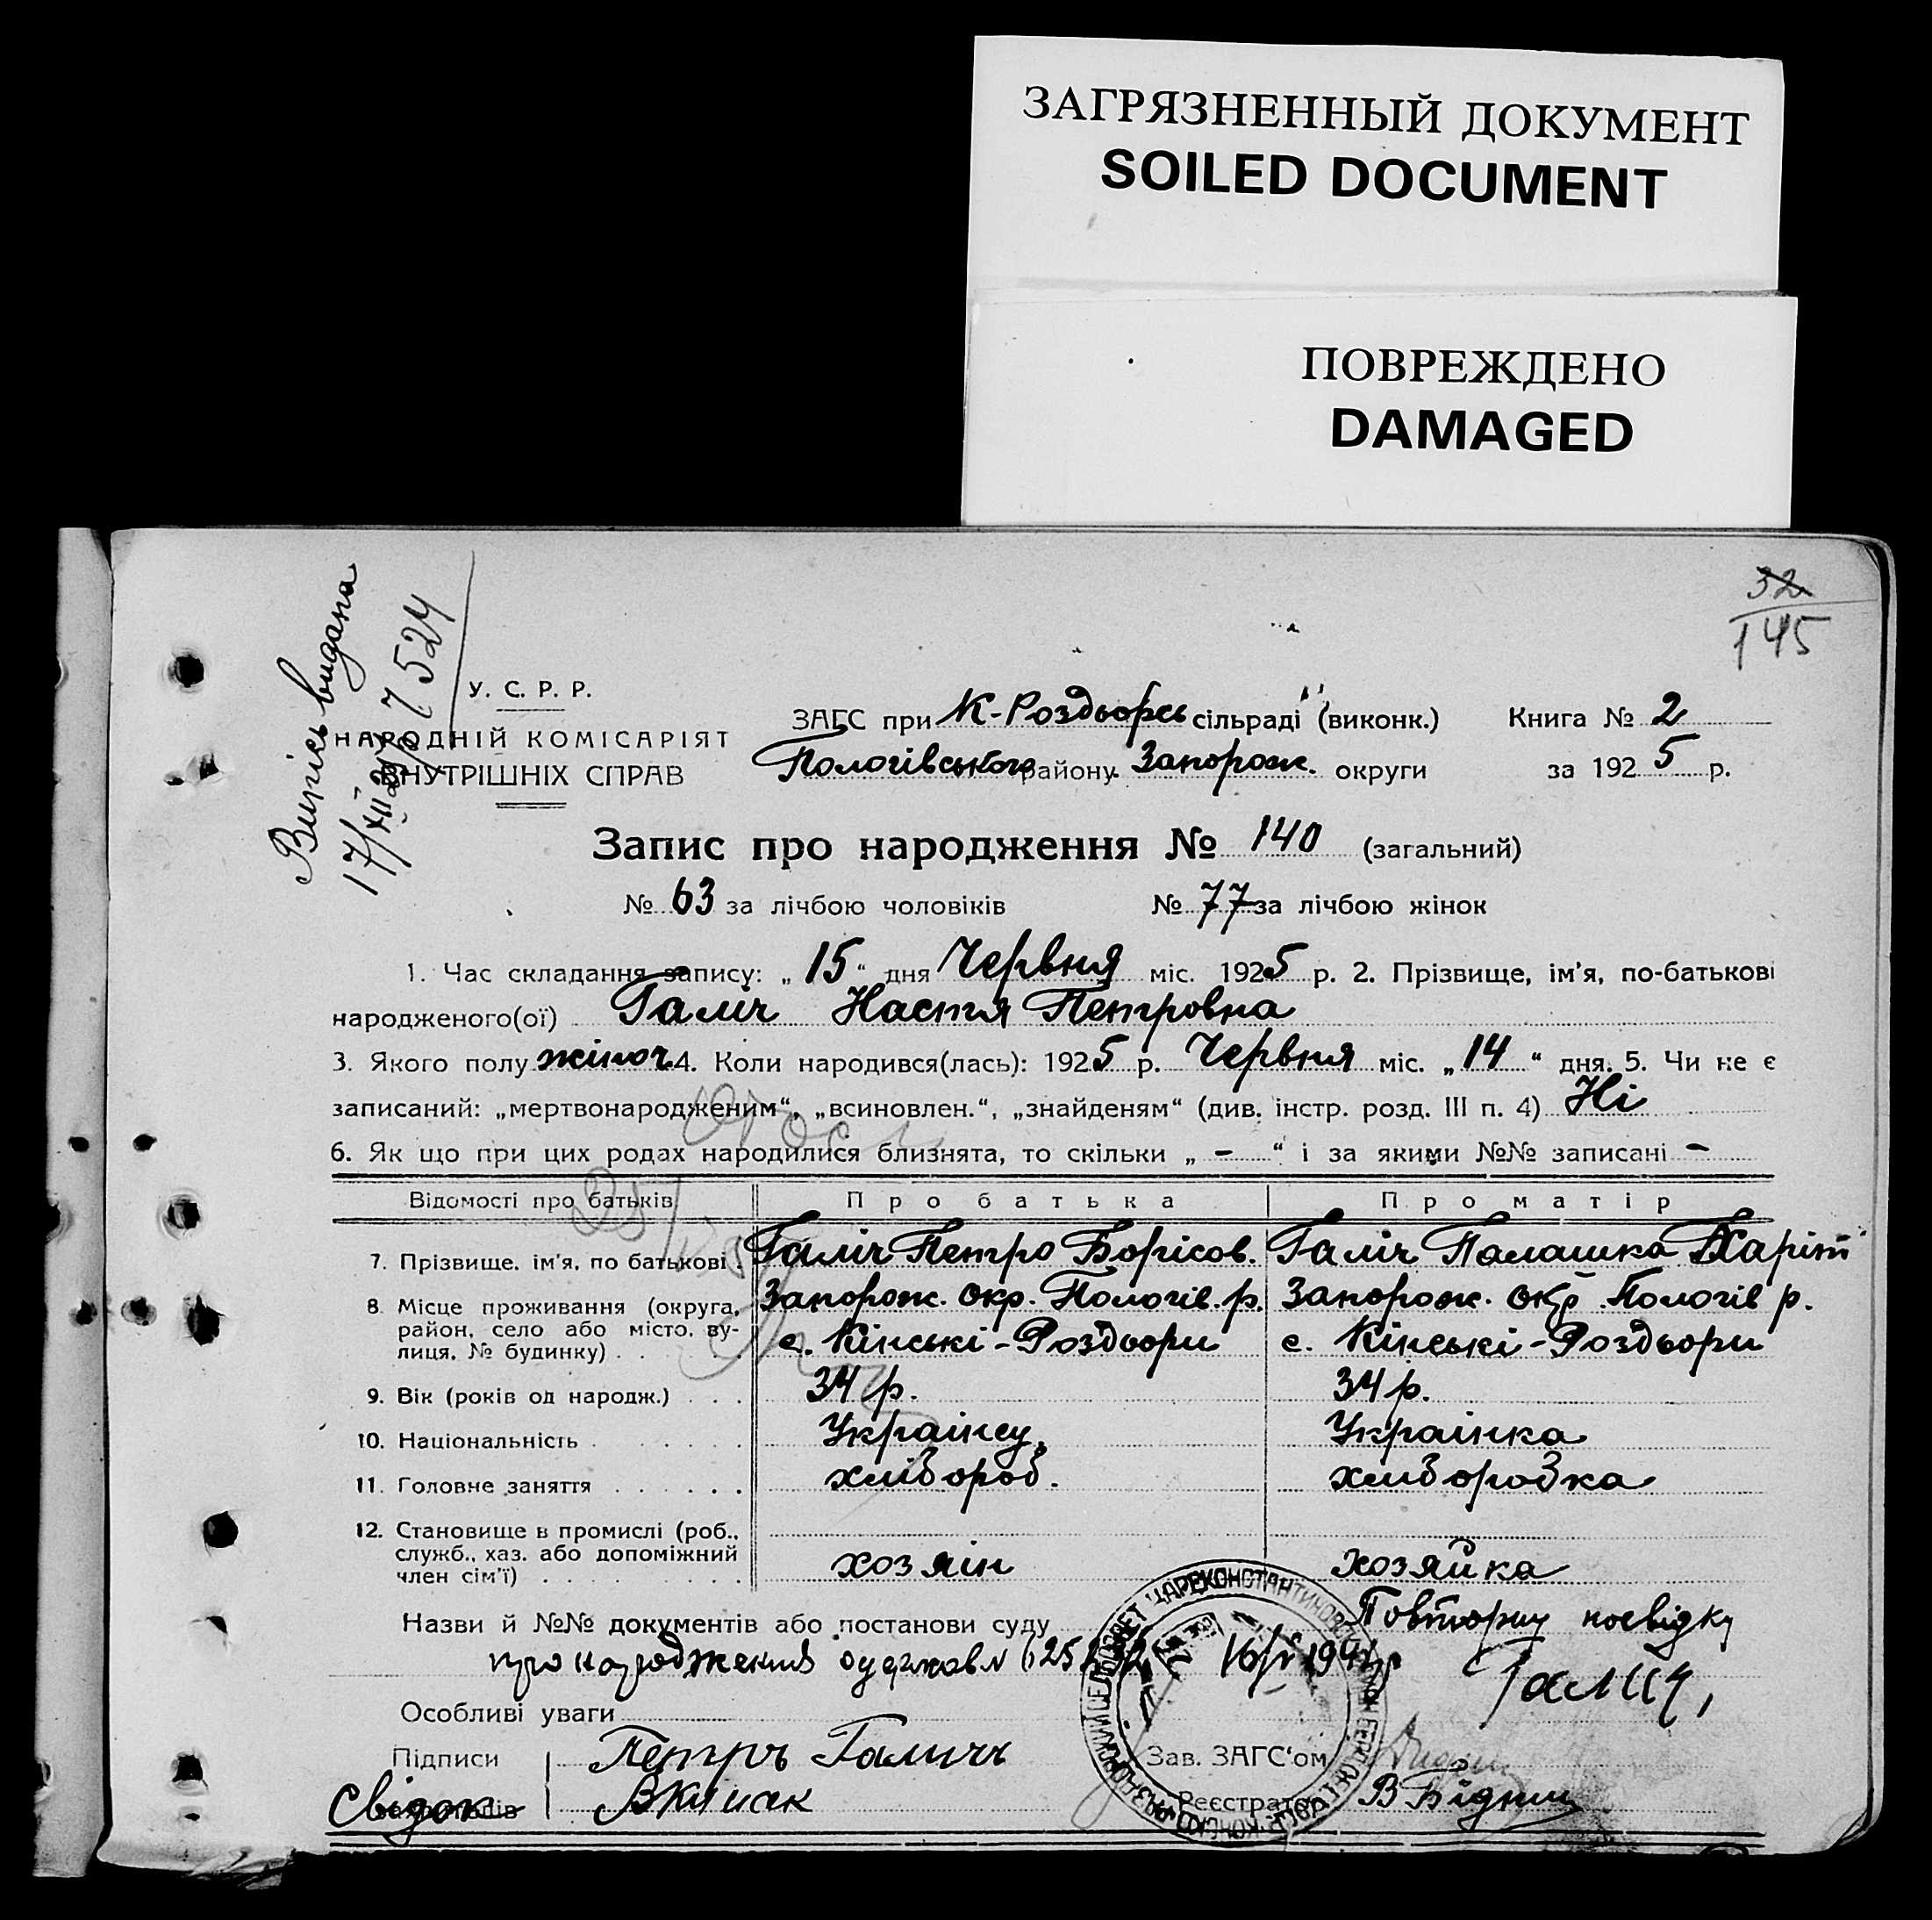 ЗАГРЯЗНЕННЫЙ ДОКУМЕНТ
SOILED DOCUMENT
ПОВРЕЖДЕНО
DAMAGED
32
145
Випись видана
17/XII 7524
У. С. Р. Р.
НАРОДНІЙ КОМІСАРІЯТ
ВНУТРІШНІХ СПРАВ
ЗАГС при К-Роздорсь сільраді (виконк.) Книга № 2
Пологівського району Запорож. округи за 1925 р.
Запис про народження № 140 (загальний)
№ 63 за лічбою чоловіків № 77 за лічбою жінок
1. Час складання запису: „15“ дня Червня міс. 1925 р. 2. Прізвище, ім'я, по-батькові
народженого(ої) Галіч Настя Петровна
3. Якого полу жіноч 4. Коли народився(лась): 1925 р. Червня міс. „14“ дня. 5. Чи не є
записаний: „мертвонародженим“, „всиновлен.“, „знайденям“ (див. інстр. розд. III п. 4) Ні
6. Як що при цих родах народилися близнята, то скільки „ – “ і за якими №№ записані –
Відомості про батьків Про батька Про матір
7. Прізвище, ім'я, по батькові . Галіч Петро Борісов. Галіч Палашка Харіт
8. Місце проживання (округа, район, село або місто, вулиця, № будинку) . Запорож. окр. Пологів. р. с. Кінські-Роздьори Запорож. окр. Пологів р. с. Кінські-Роздьори
9. Вік (років од народж.) . . . 34 р. 34 р.
10. Національність . . . . . . Украінец. Украінка
11. Головне заняття . . . . . . хлібороб. хліборобка
12. Становище в промислі (роб., служб., хаз. або допоміжний член сім'ї) . хозяін хозяйка
Назви й №№ документів або постанови суду Повторну посвідку
про народження одержав 16/V 1941 р Галич,
Особливі уваги
Підписи Петръ Галичъ Зав. ЗАГС'ом
Свідок Реєстратор В Бідни